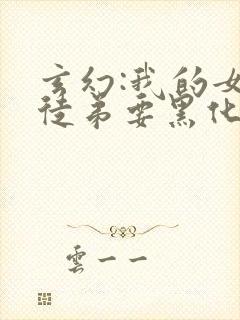 玄幻:我的女
徒弟要黑化
雲一一